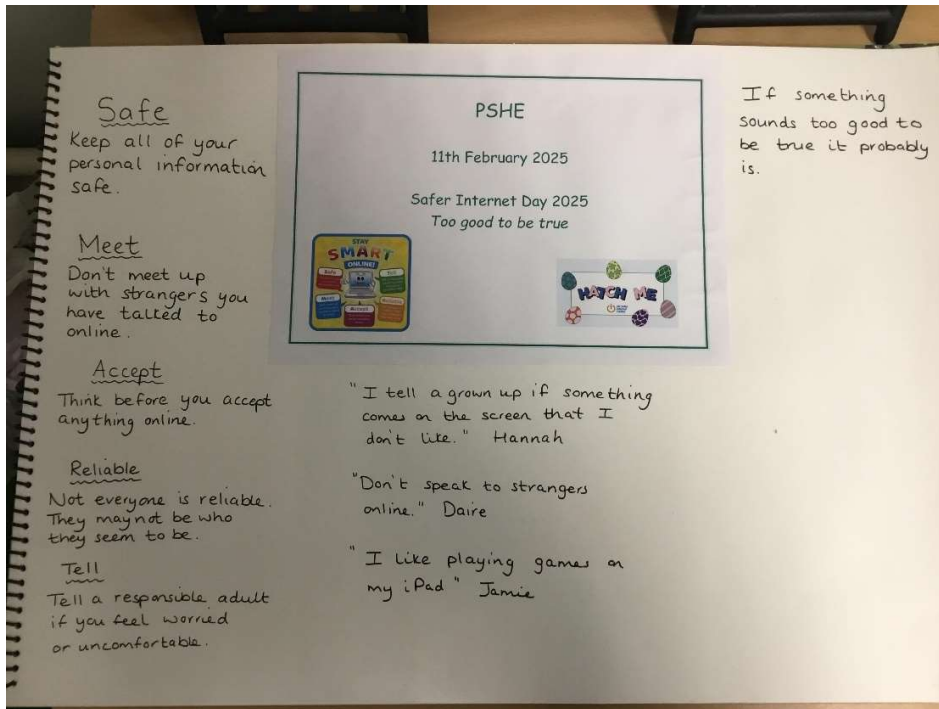 Safe
Keep all of your
personal information
safe.
Meet
Don't meet up
with strangers you
have talked to
online.
Accept
Think before you accept
anything online.
Reliable
Not everyone is reliable.
They may not be who
they seem to be.
Tell
Tell a responsible adult
if you feel worried
or uncomfortable.
PSHE
11th February 2025
Safer Internet Day 2025
Too good to be true
STAY
SMART
ONLINE!
Safe
Tell
Meet
Reliable
Accept
HATCH ME
"I tell a grown up if something
comes on the screen that I
don't like." Hannah
"Don't speak to strangers
online." Daire
"I like playing games on
my iPad" Jamie
If something
sounds too good to
be true it probably
is.